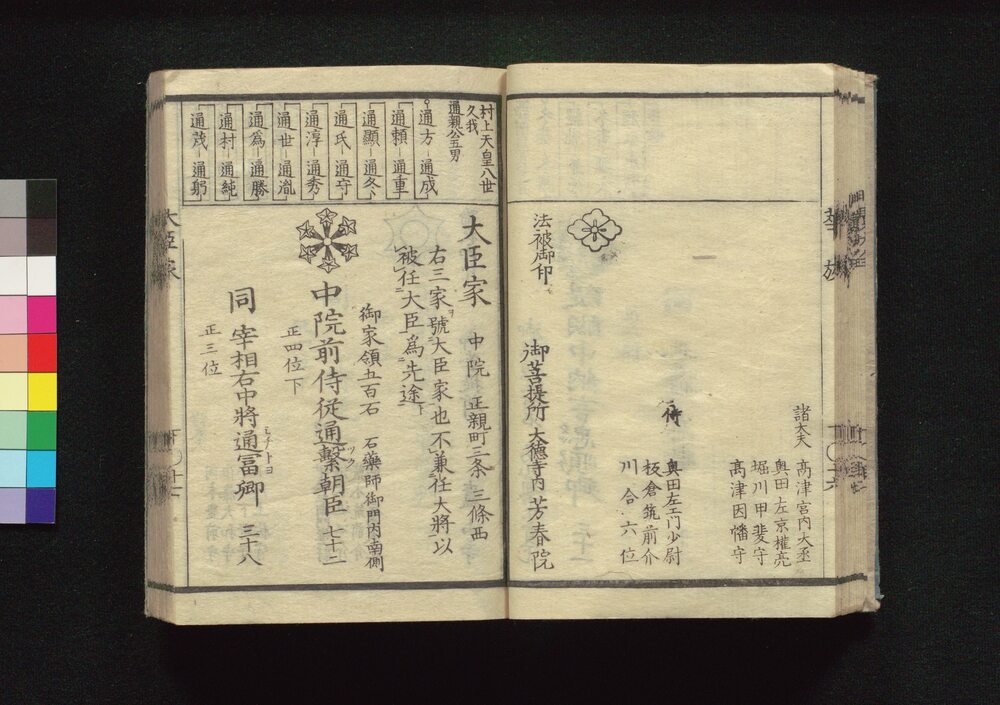 華族
諸大夫
髙津宮内大丞
奥田左京權亮
堀川甲斐守
髙津因幡守
侍
奥田左エ門少尉
板倉筑前介
川合六位
法被御印
御菩提所 大徳寺内 芳春院
村上天皇八世
久我
通親公五男
通方 通成
通頼 通重
通顯 通冬
通氏 通守
通淳 通秀
通世 通胤
通為 通勝
通村 通純
通茂 通躬
大臣家 中院 正親町三条 三條西
右三家號大臣家也不兼任大將以
被任大臣為先途
御家領五百石 石薬師御門内南側
中院前侍従通繫朝臣 七十二
正四位下
同 宰相右中將通冨卿 三十八
ミチトヨ
正三位
大臣家